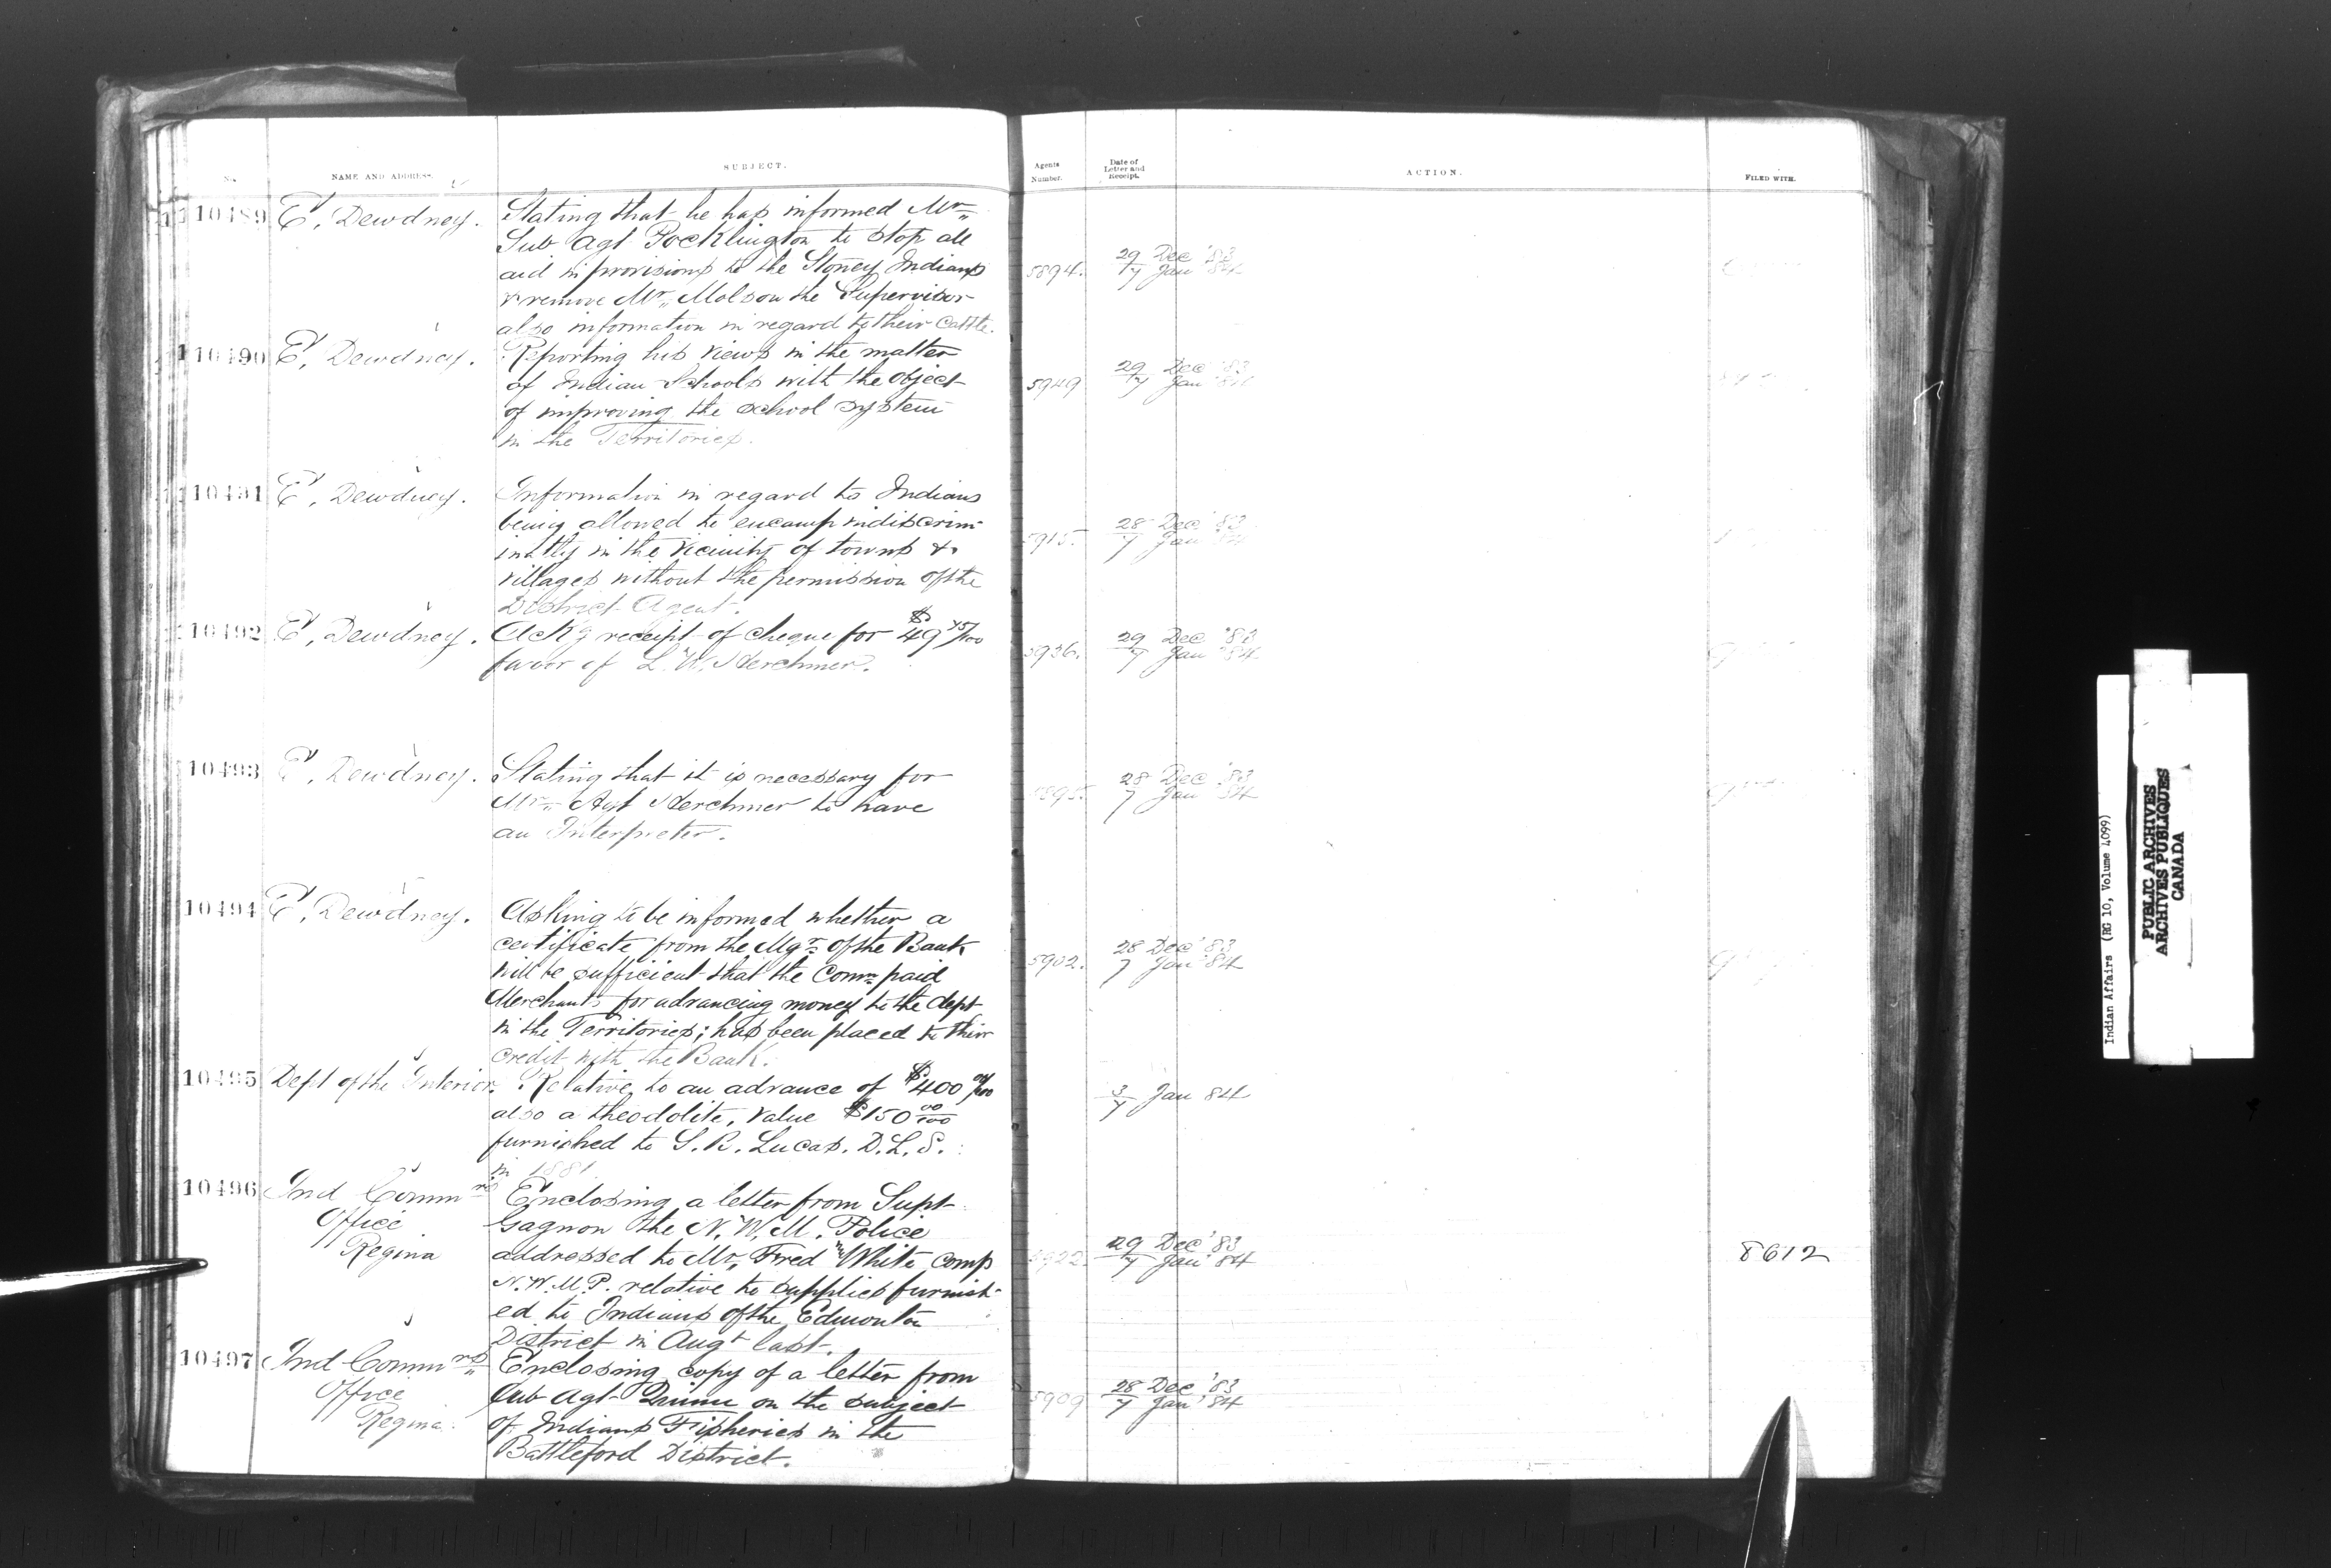 No.
NAME AND ADDRESS.
SUBJECT.
Agents Number.
Date of Letter and Receipt.
ACTION.
FILED WITH.
10489 E. Dewdney. Stating that he has informed Mr.
Sub Agt Pocklington to stop all
aid in provisions to the Stoney Indians
& remove Mr. Molson the Supervisor
also information in regard to their Cattle.
5894. 29 Dec '83
7 Jan '84
10490 E. Dewdney. Reporting his views in the matter
of Indian Schools with the object
of improving the school system
in the Territories.
5949 29 Dec '83
7 Jan '84
10491 E. Dewdney. Information in regard to Indians
being allowed to encamp indiscrim-
inatly in the vicinity of towns &
villages without the permission of the
District Agent.
5915. 28 Dec '83
7 Jan '84
10492 E. Dewdney. Ackg receipt of cheque for $49 45/100
favor of L. W. Herchmer.
5936. 29 Dec '83
7 Jan '84
10493 E. Dewdney. Stating that it is necessary for
Mr. Agt Herchmer to have
an Interpreter.
28 Dec '83
7 Jan '84
10494 E. Dewdney. Asking to be informed whether a
certificate from the Mgr. of the Bank
will be sufficient that the Comn paid
Merchants for advancing money to the dept
in the Territories; has been placed to their
credit with the Bank.
5902. 28 Dec '83
7 Jan '84
10495 Dept of the Interior. Relative to an advance of $400 00/100
also a theodolite, value $150 00/100
furnished to S. B. Lucas. D.L.S.
in 1881
3/7 Jan 84
10496 Ind Commrs
Office
Regina
Enclosing a letter from Supt
Gagnon the N. W. M. Police
addressed to Mr. Fred White comp
N.W.M.P. relative to supplies furnish-
ed to Indians of the Edmonton
District in Augt last.
5922. 29 Dec '83
7 Jan '84
8612
10497 Ind Commrs
Office
Regina.
Enclosing copy of a letter from
Sub Agt Quinn on the subject
of Indians Fisheries in the
Battleford District.
5909 28 Dec '83
7 Jan '84
Indian Affairs (RG 10, Volume 4099)
PUBLIC ARCHIVES
ARCHIVES PUBLIQUES
CANADA